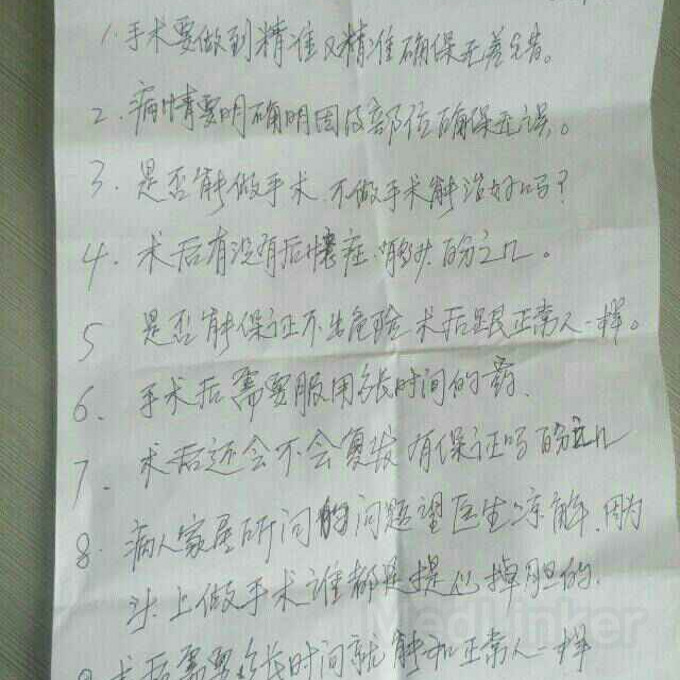 1. 手术要做到精准又精准确保无差错。
2. 病情要明确明因及部位确保无误。
3. 是否能做手术 不做手术能治好吗?
4. 术后有没有后懐症 有多少 百分之几。
5 是否能保证不出危险 术后跟正常人一样。
6. 手术后需要服用多长时间的药.
7. 术后还会不会复发 有保证吗 百分之几
8. 病人家属所问的问题望医生凉解.因为
头上做手术谁都是提心掉胆的.
9 术后需要多长时间就能和正常人一样
MedLinker